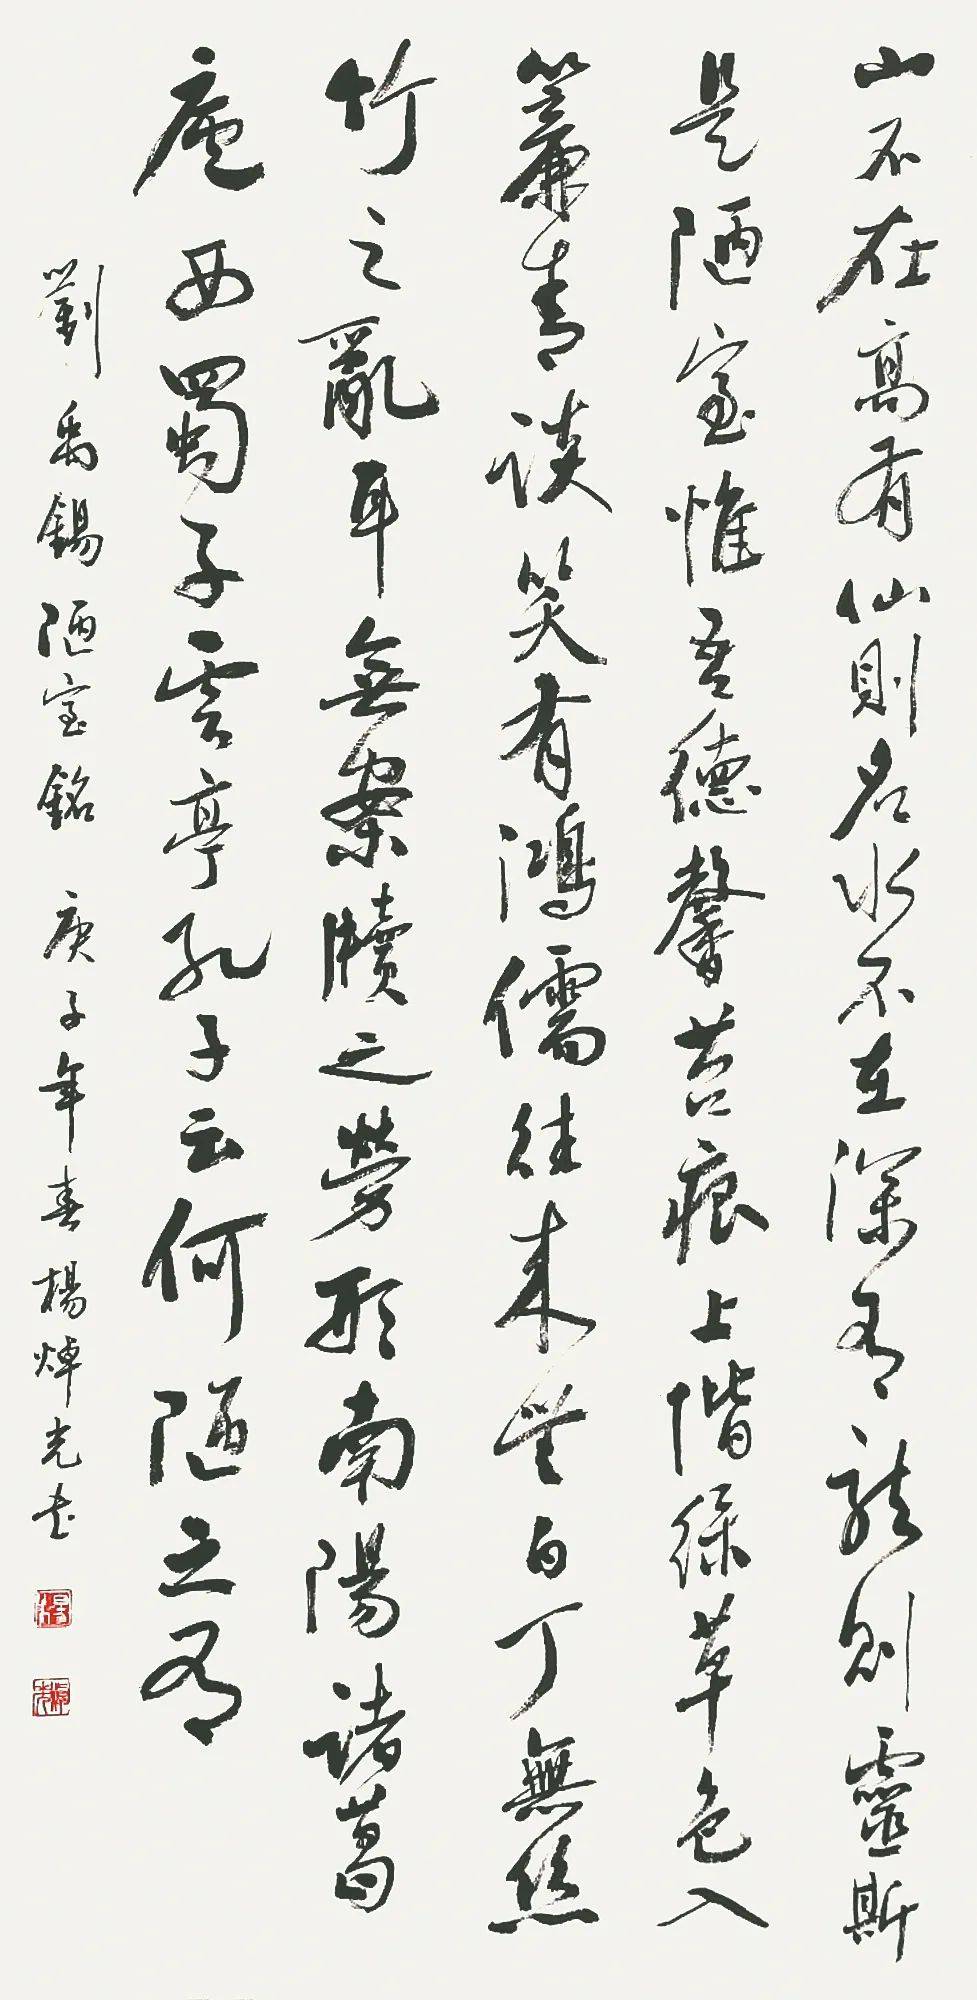 山不在高有仙則名水不在深有龍則靈斯
是陋室惟吾德馨苔痕上階綠草色入
簾青談笑有鴻儒往來無白丁無絲
竹之亂耳無案牘之勞形南陽諸葛
廬西蜀子雲亭孔子云何陋之有
劉禹錫陋室銘 庚子年春楊焯光書